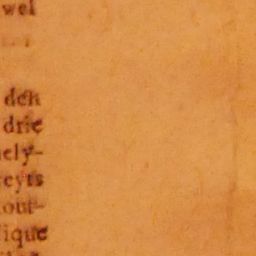 wel
den
drie
ely-
eyts
out-
ique